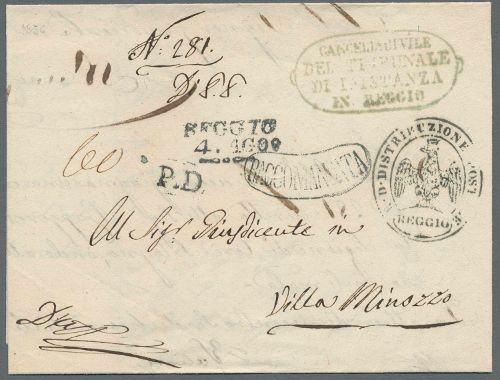 Nº 281.
D. S. S.
CANCELL. CIVILE
DEL TRIBUNALE
DI I. ISTANZA
IN REGGIO
REGGIO
4. AGO
60
P.D.
RACCOMANDATA
I. D. DISTRIBUZIONE POST
REGGIO
Al Sigr Giusdicente in
Villa Minozzo